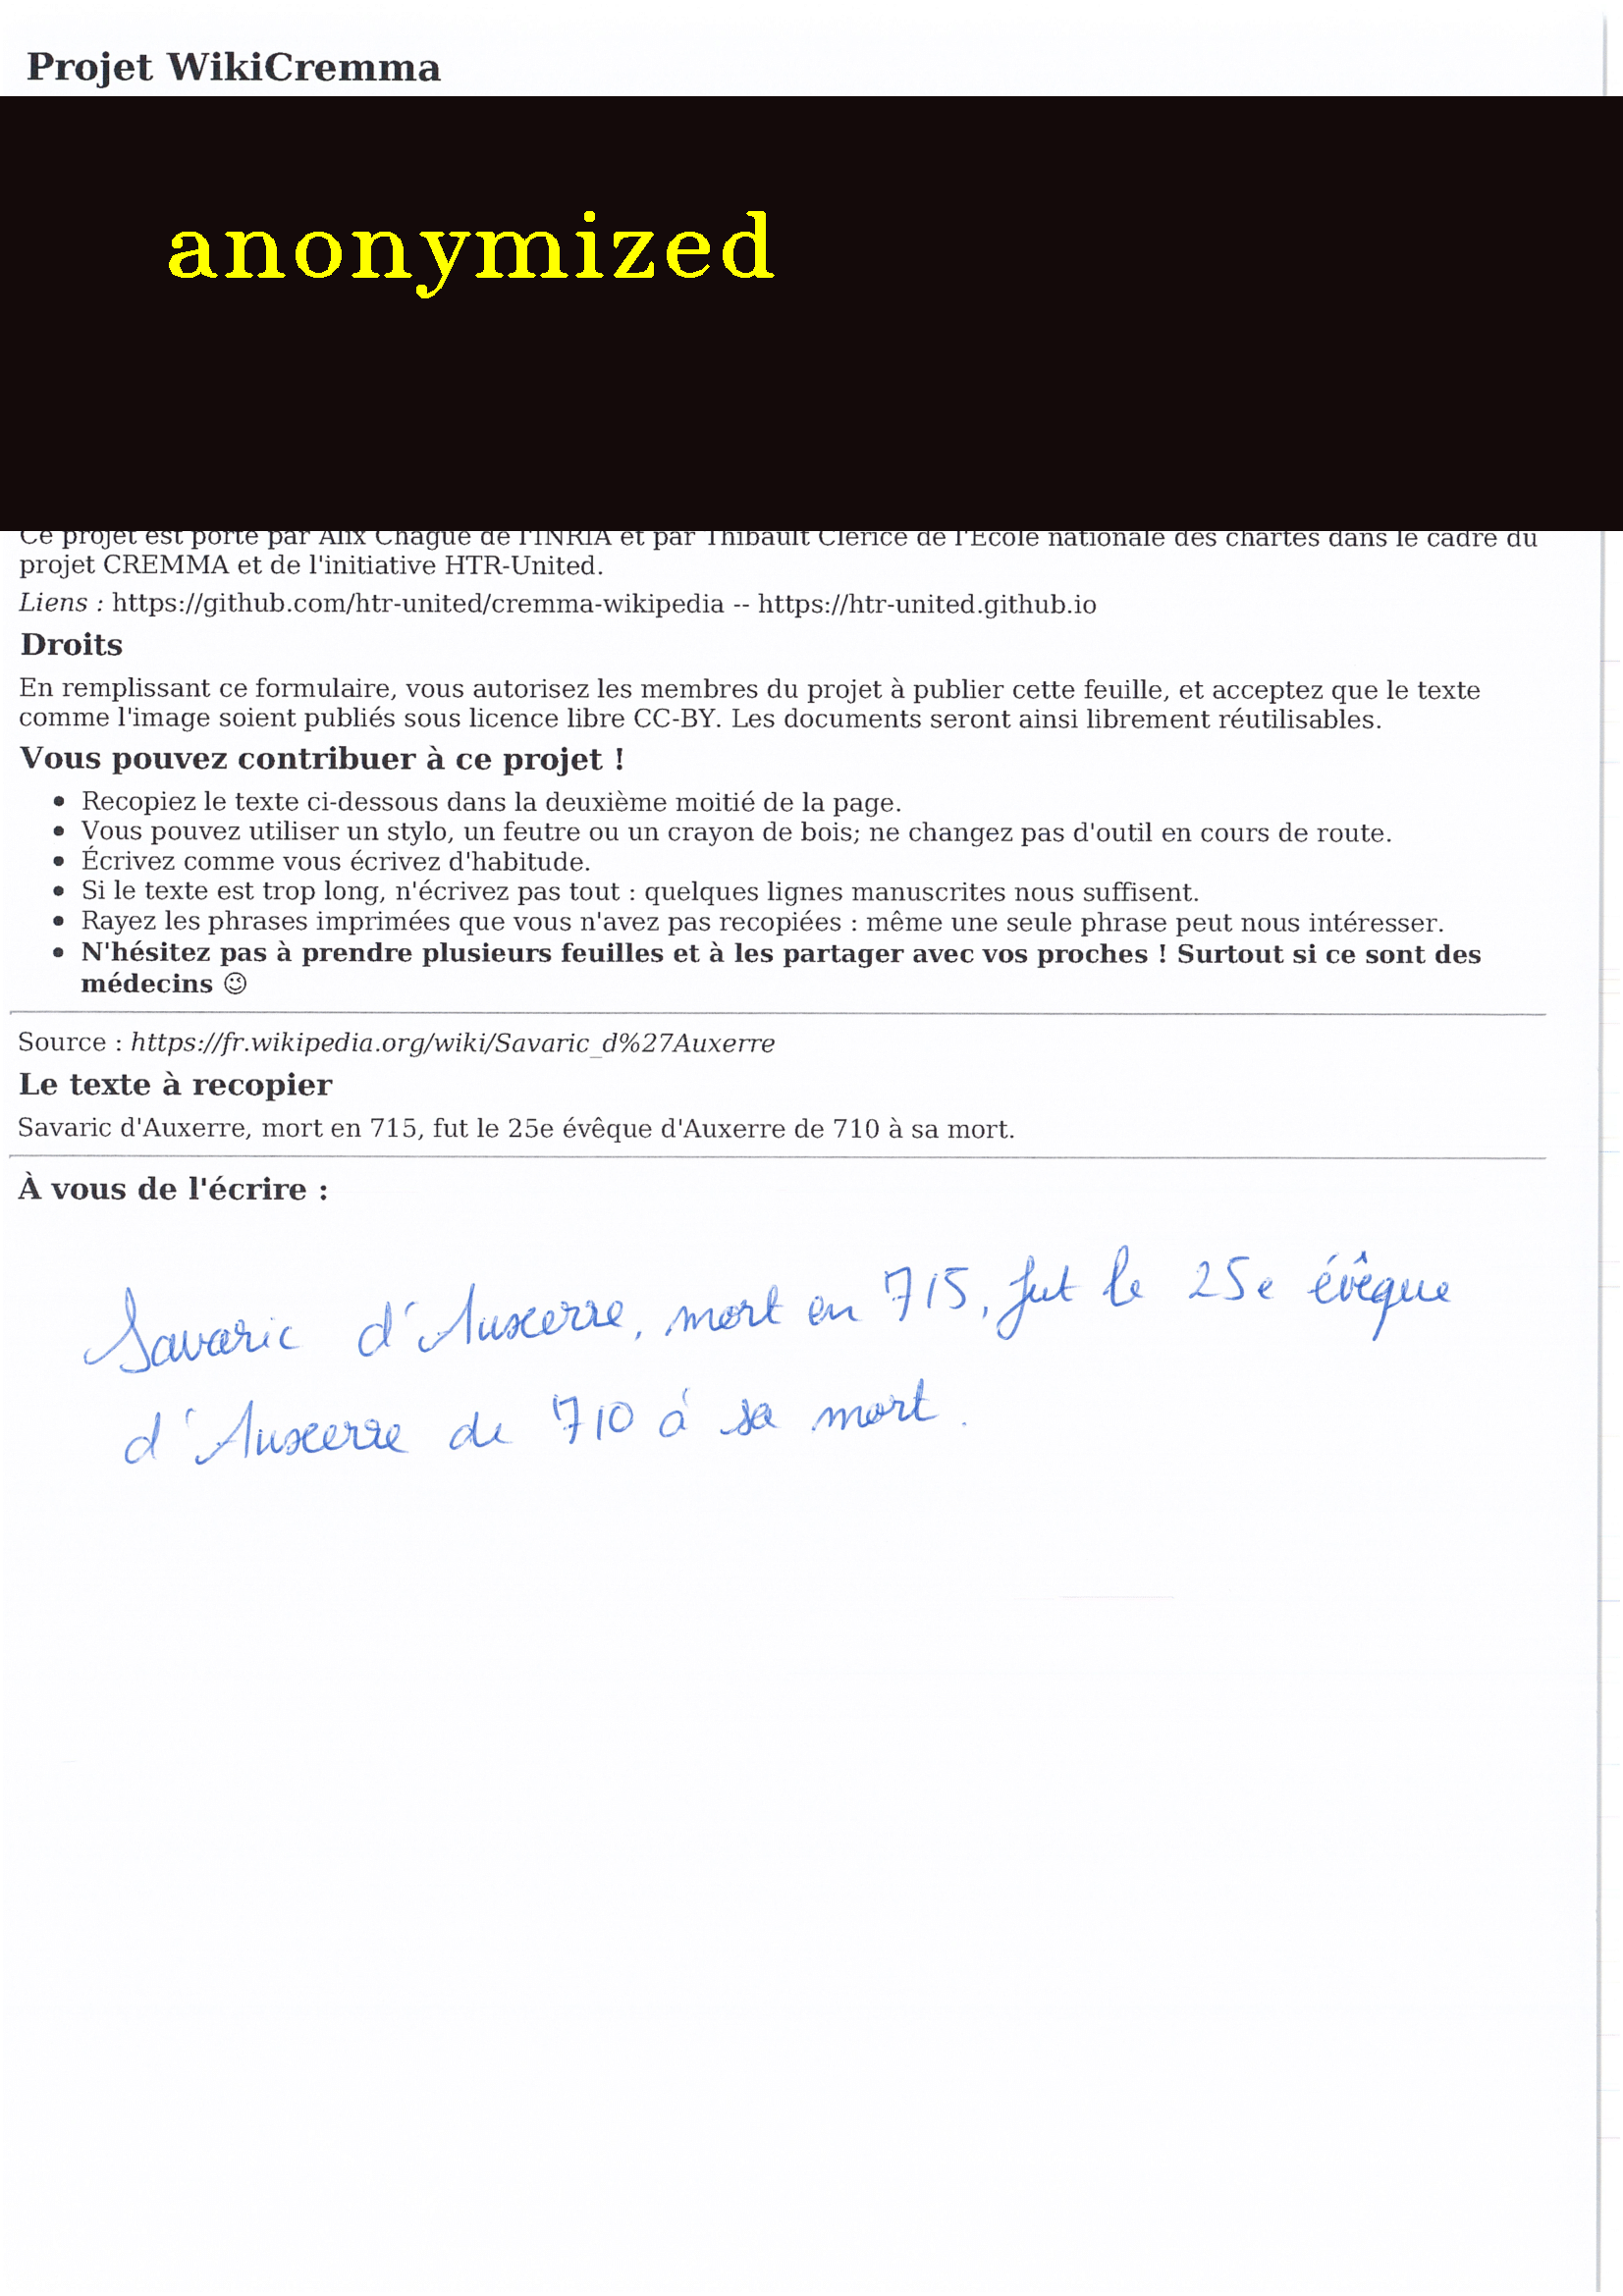 Projet WikiCremma
anonymized
Ce projet est porté par Alix Chagué de l'INRIA et par Thibault Clérice de l'École nationale des chartes dans le cadre du
projet CREMMA et de l'initiative HTR-United.
Liens : https://github.com/htr-united/cremma-wikipedia -- https://htr-united.github.io
Droits
En remplissant ce formulaire, vous autorisez les membres du projet à publier cette feuille, et acceptez que le texte
comme l'image soient publiés sous licence libre CC-BY. Les documents seront ainsi librement réutilisables.
Vous pouvez contribuer à ce projet !
• Recopiez le texte ci-dessous dans la deuxième moitié de la page.
• Vous pouvez utiliser un stylo, un feutre ou un crayon de bois; ne changez pas d'outil en cours de route.
• Écrivez comme vous écrivez d'habitude.
• Si le texte est trop long, n'écrivez pas tout : quelques lignes manuscrites nous suffisent.
• Rayez les phrases imprimées que vous n'avez pas recopiées : même une seule phrase peut nous intéresser.
• N'hésitez pas à prendre plusieurs feuilles et à les partager avec vos proches ! Surtout si ce sont des
médecins ☺
Source : https://fr.wikipedia.org/wiki/Savaric_d%27Auxerre
Le texte à recopier
Savaric d'Auxerre, mort en 715, fut le 25e évêque d'Auxerre de 710 à sa mort.
À vous de l'écrire :
Savaric d'Auxerre, mort en 715, fut le 25e évêque
d'Auxerre de 710 à sa mort.